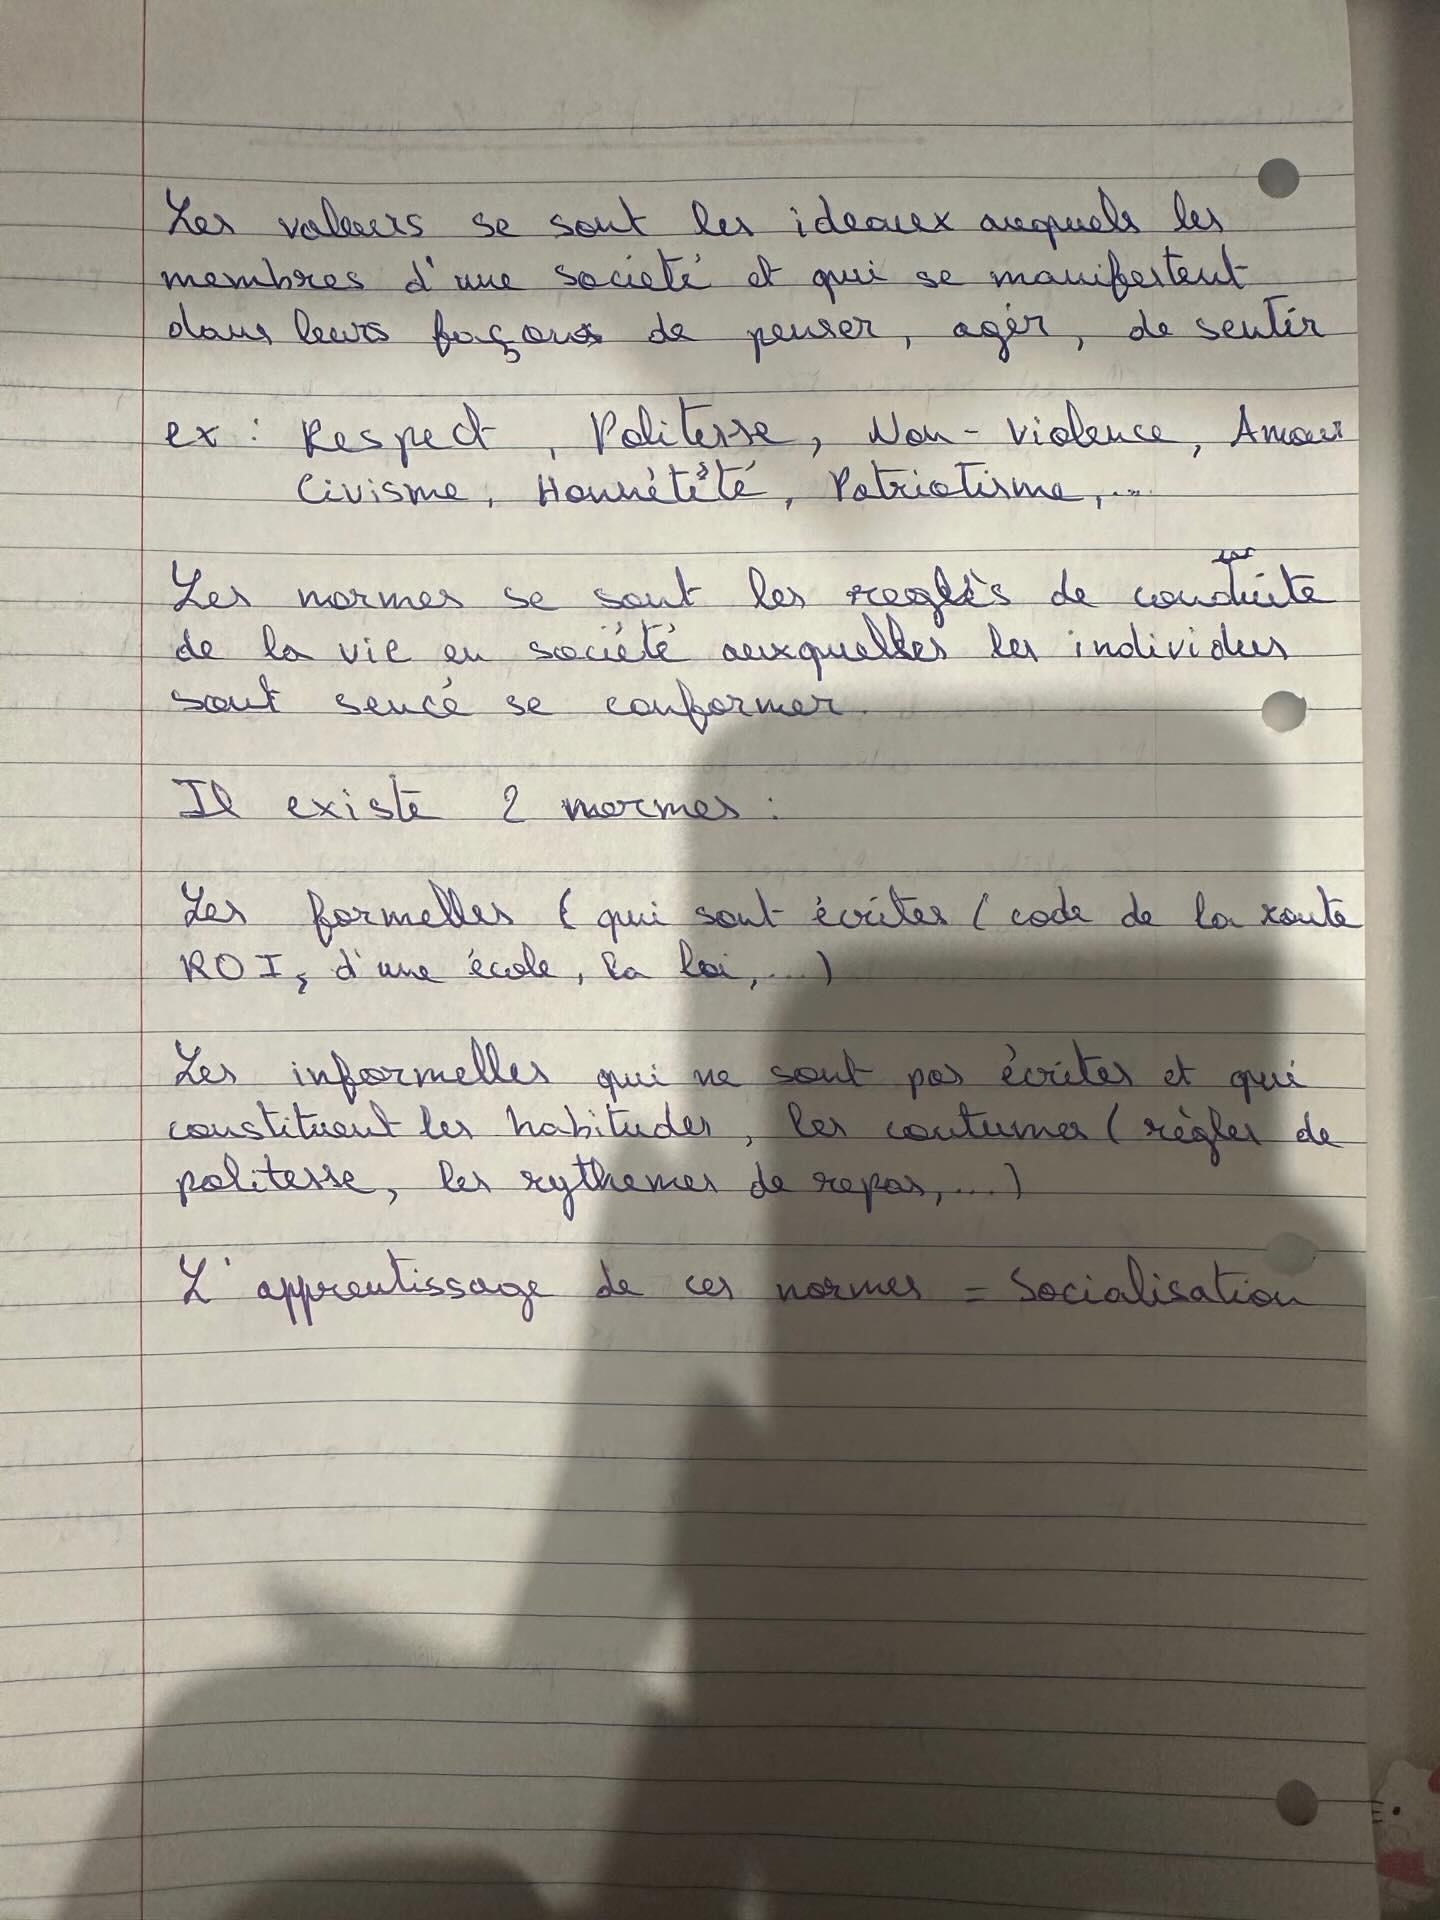 Les valeurs se sont les ideaux auquels les
membres d'une société et qui se manifestent
dans leurs façons de penser, agir, de sentir
ex : Respect, Politesse, Non-violence, Amour
Civisme, Honnêtêté, Patriotisme,...
Les normes se sont les reglès de conduite
de la vie en société auxquelles les individus
sont sencé se conformer.
Il existe 2 normes :
Les formelles ( qui sont écrites ( code de la route
ROI, d'une école, la loi,...)
Les informelles qui ne sont pas écrites et qui
constituent les habitudes, les coutumes ( règles de
politesse, les rythemes de repas,....)
L'apprentissage de ces normes = Socialisation